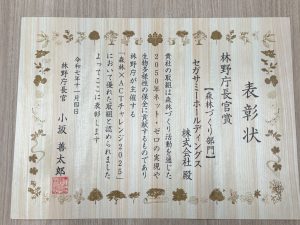 表彰状
林野庁長官賞
【森林づくり部門】
セガサミーホールディングス
株式会社 殿
貴社の取組は森林づくり活動を通じた
2050年ネット・ゼロの実現や
生物多様性の保全に貢献するものであり
林野庁が主催する
「森林×ACTチャレンジ2025」
において優れた取組と認められました
よってここに表彰します
令和七年十一月四日
林野庁長官 小坂 善太郎